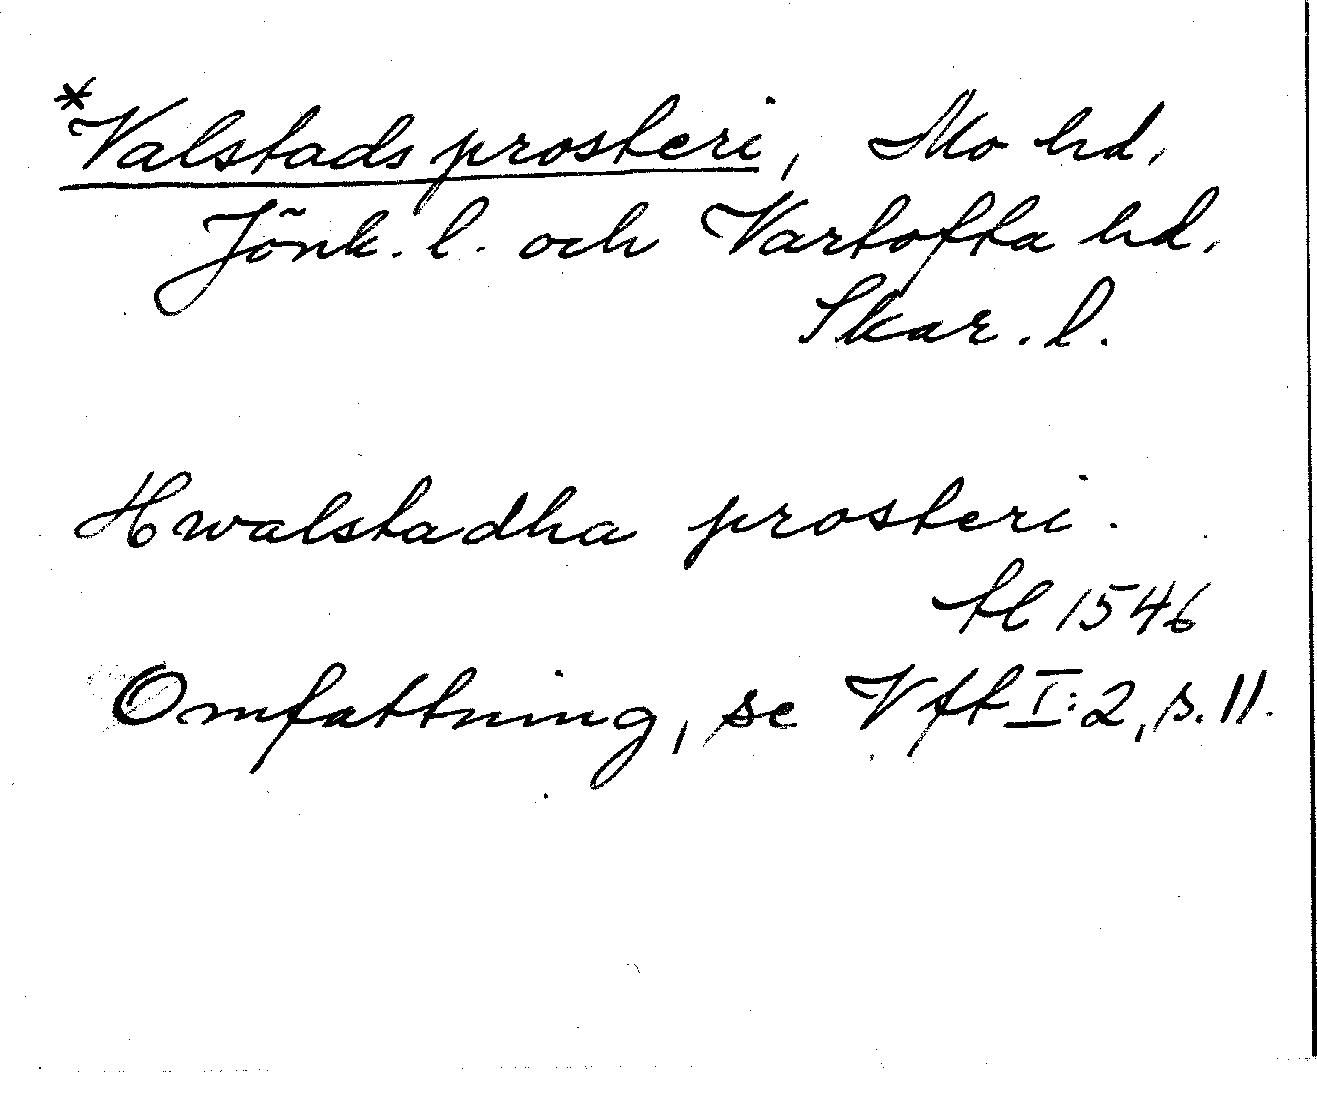 *Valstads prosteri, Mo hd,
Jönk. l. och Vartofta hd,
Skar. l.
Hwalstadha prosteri.
tl 1546
Omfattning, se Vft I:2, s. 11.